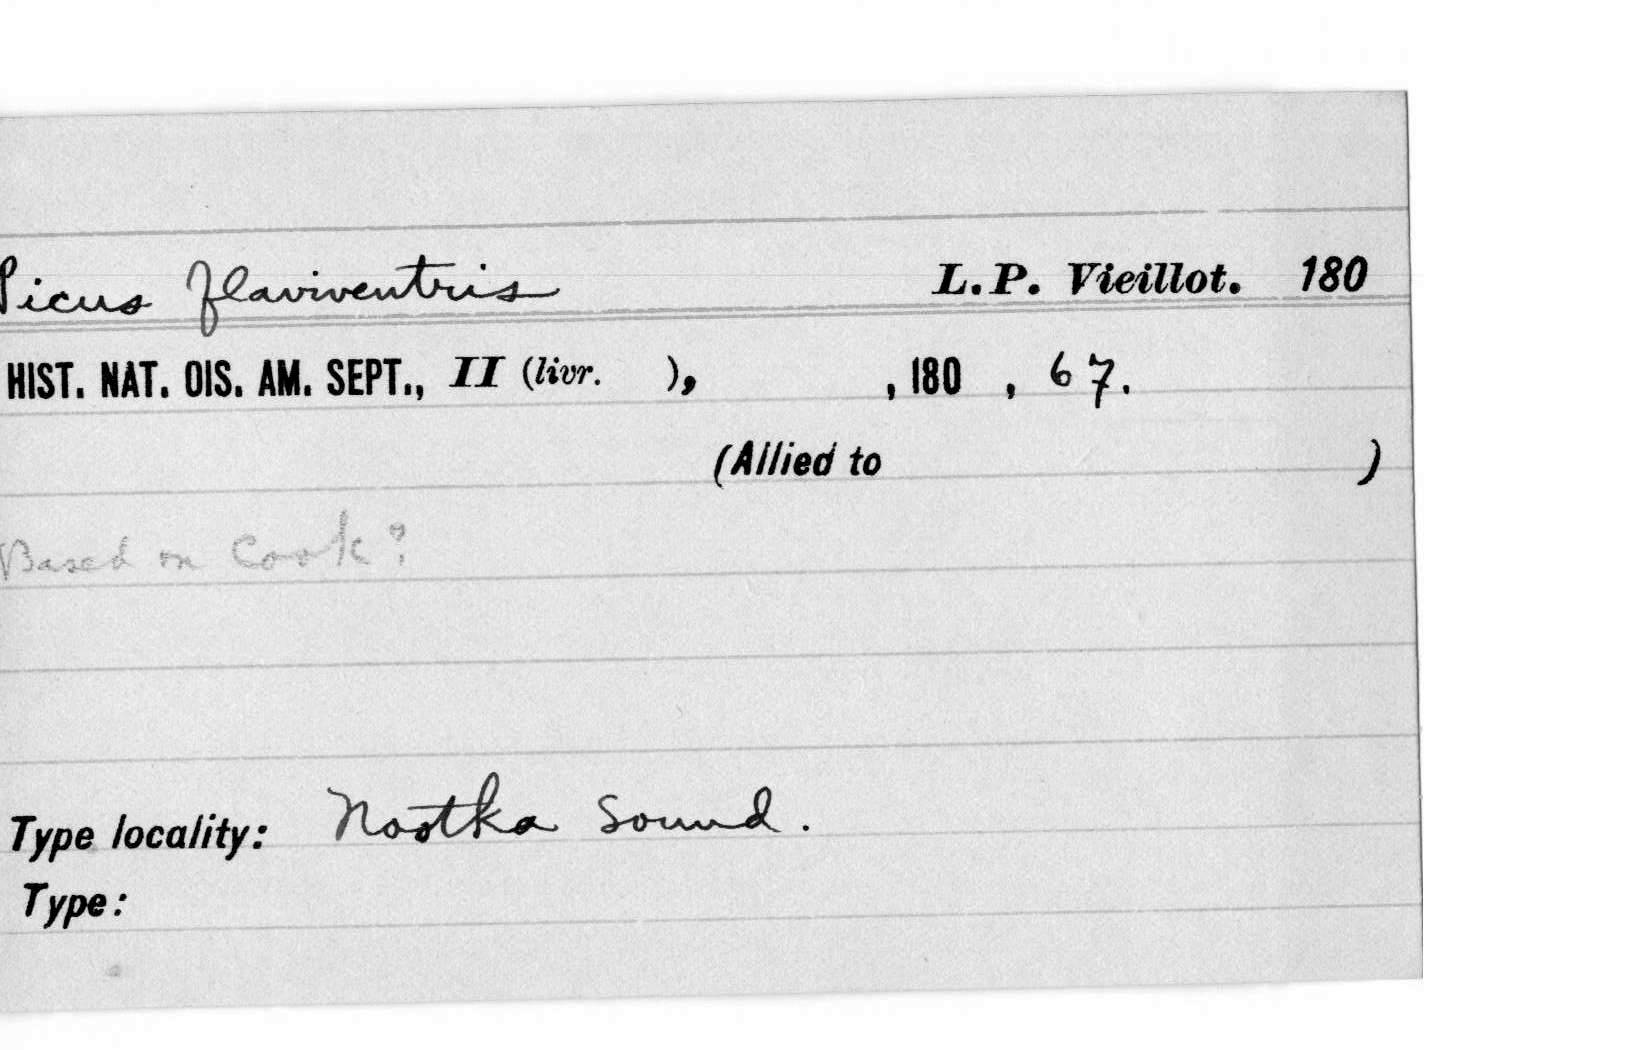 Picus flaviventris L.P. Vieillot. 180
HIST. NAT. OIS. AM. SEPT., II (livr. ), , 180 , 67.
(Allied to )
Based on Cook?
Type locality: Nootka Sound.
Type: